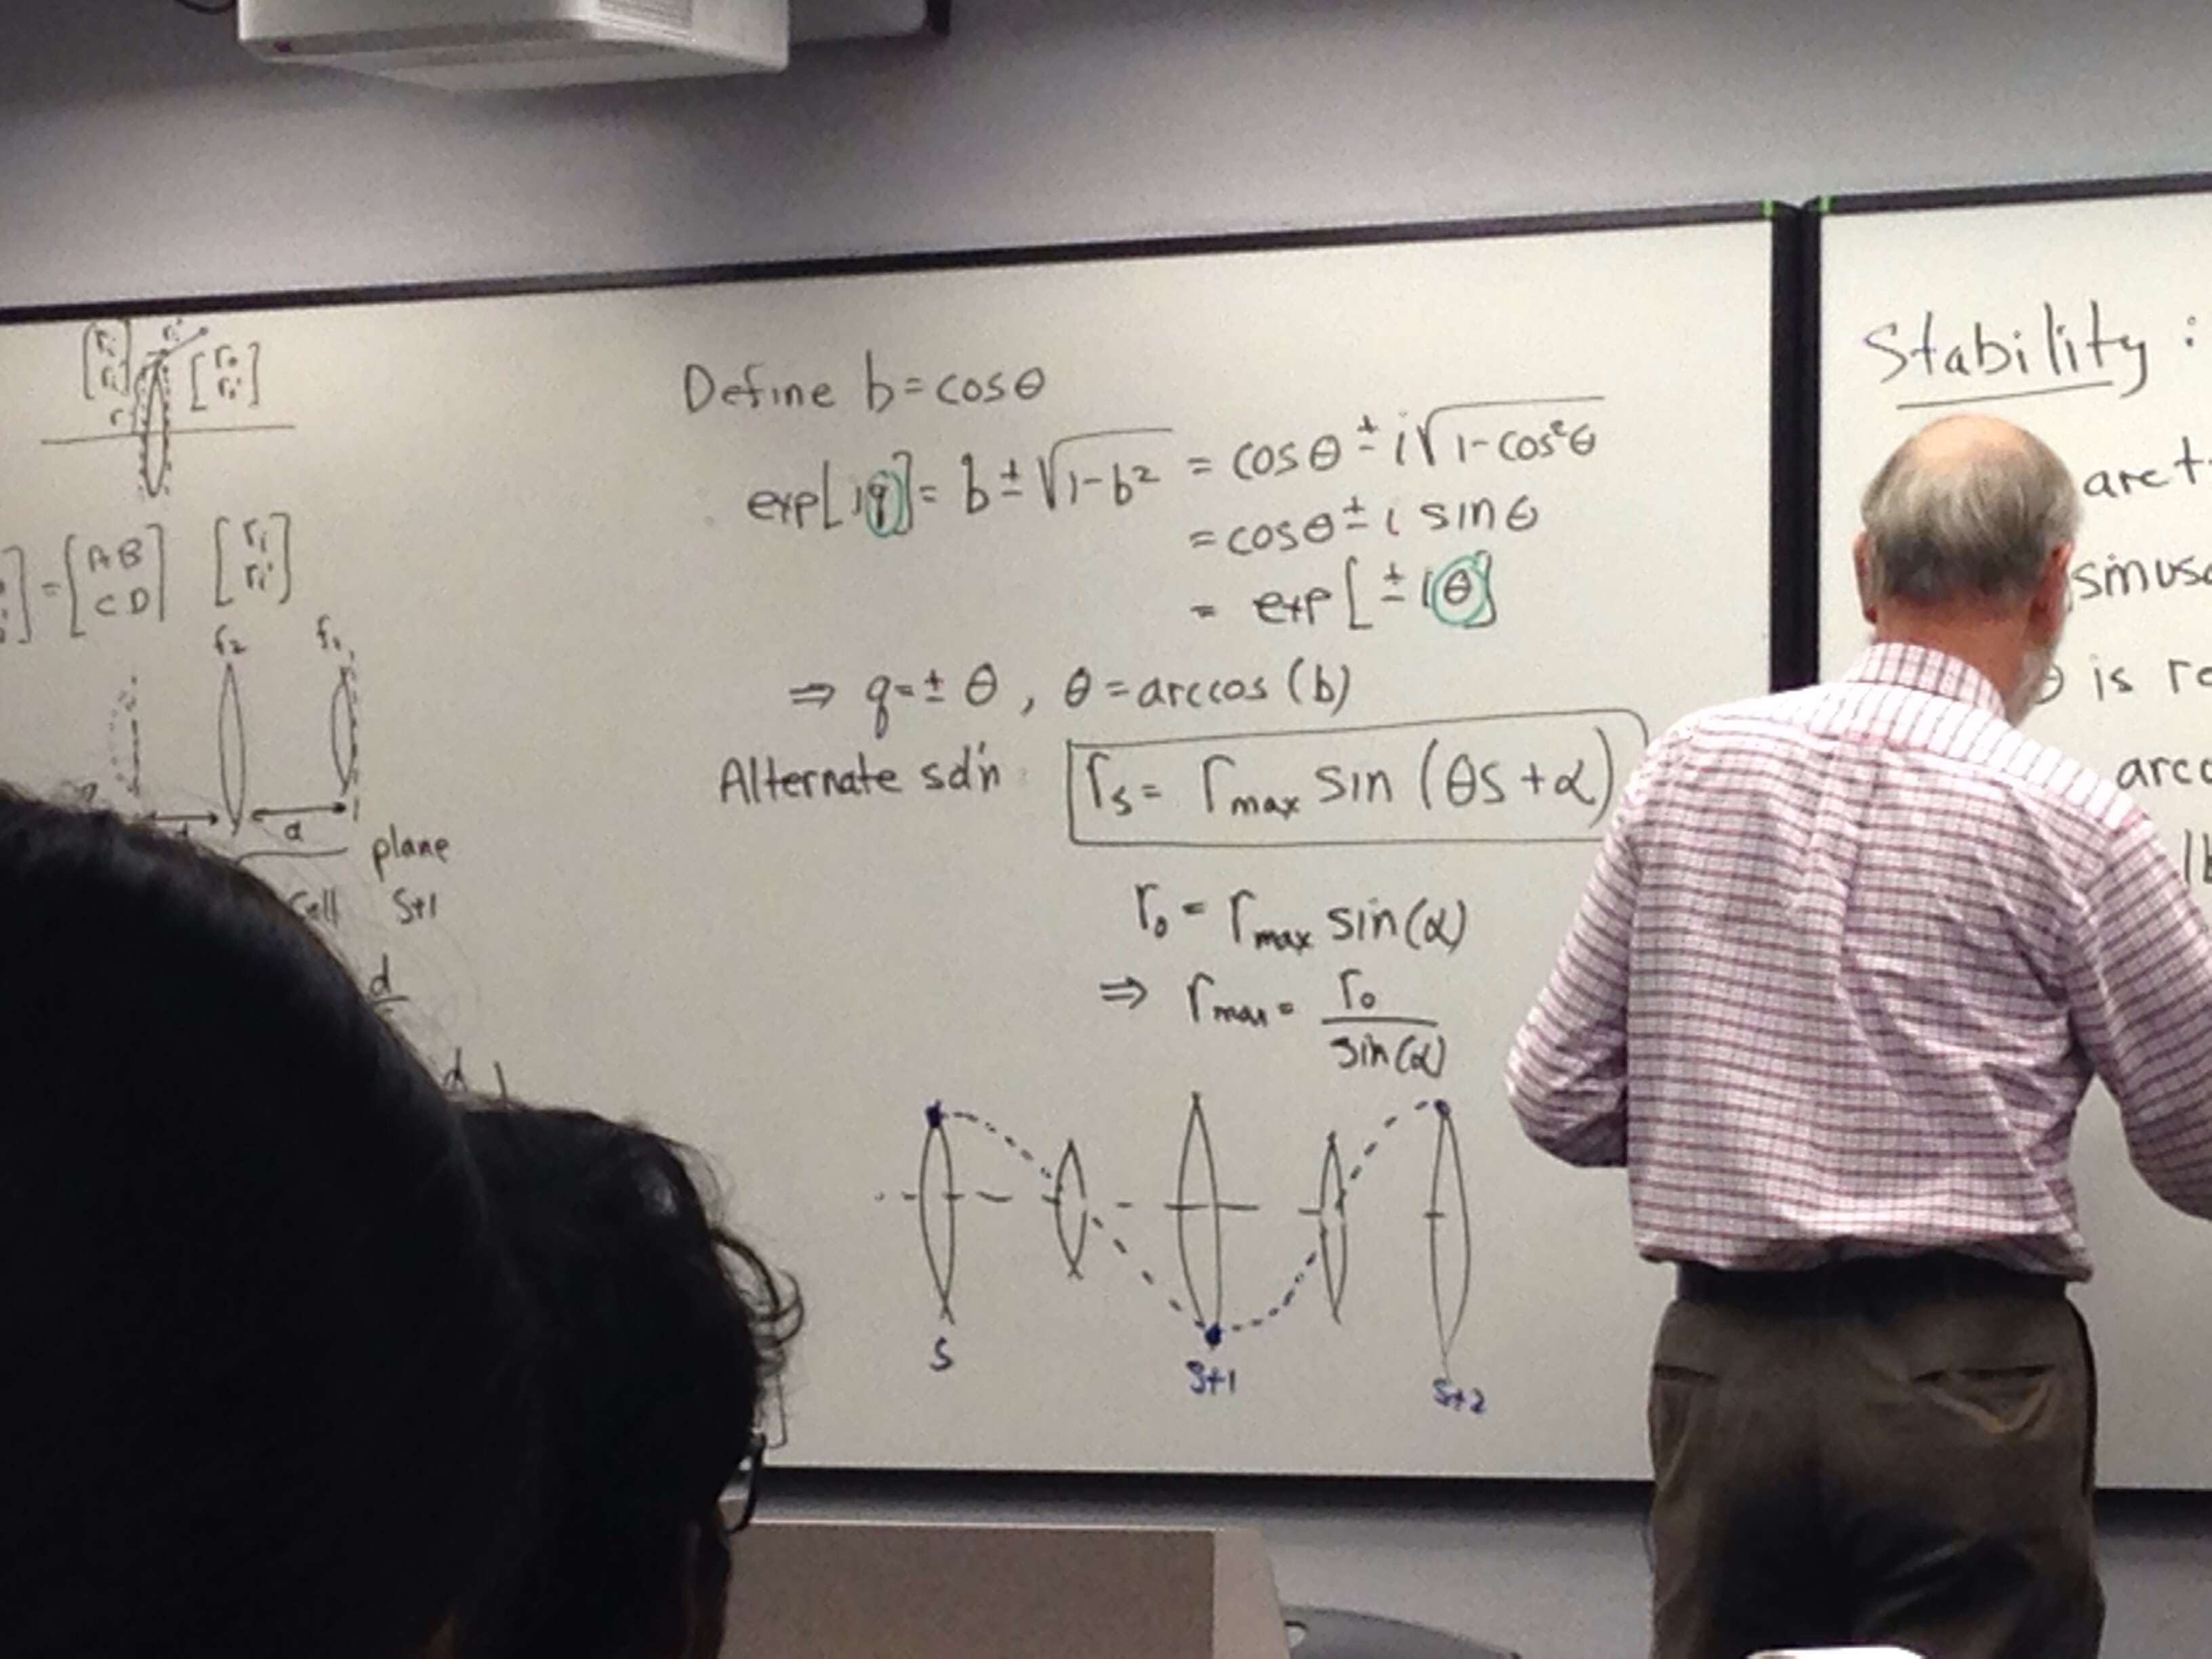 [ri ri'] ri' [ro ro']
r
] = [A B C D] [ri ri']
f2 f1
d
plane
Cell S+1
d
d
Define b = cosθ
exp[iq] = b ± √1-b² = cosθ ± i√1-cos²θ
= cosθ ± i sinθ
= exp[± iθ]
⇒ q = ± θ, θ = arccos (b)
Alternate sol'n : rs = rmax sin (θs + α)
r0 = rmax sin(α)
⇒ rmax = r0 / sin(α)
S S+1 S+2
Stability :
is